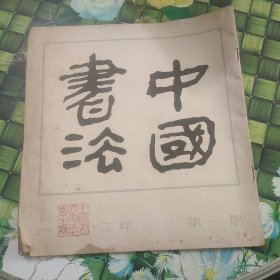 中國
書法
二年 第一期